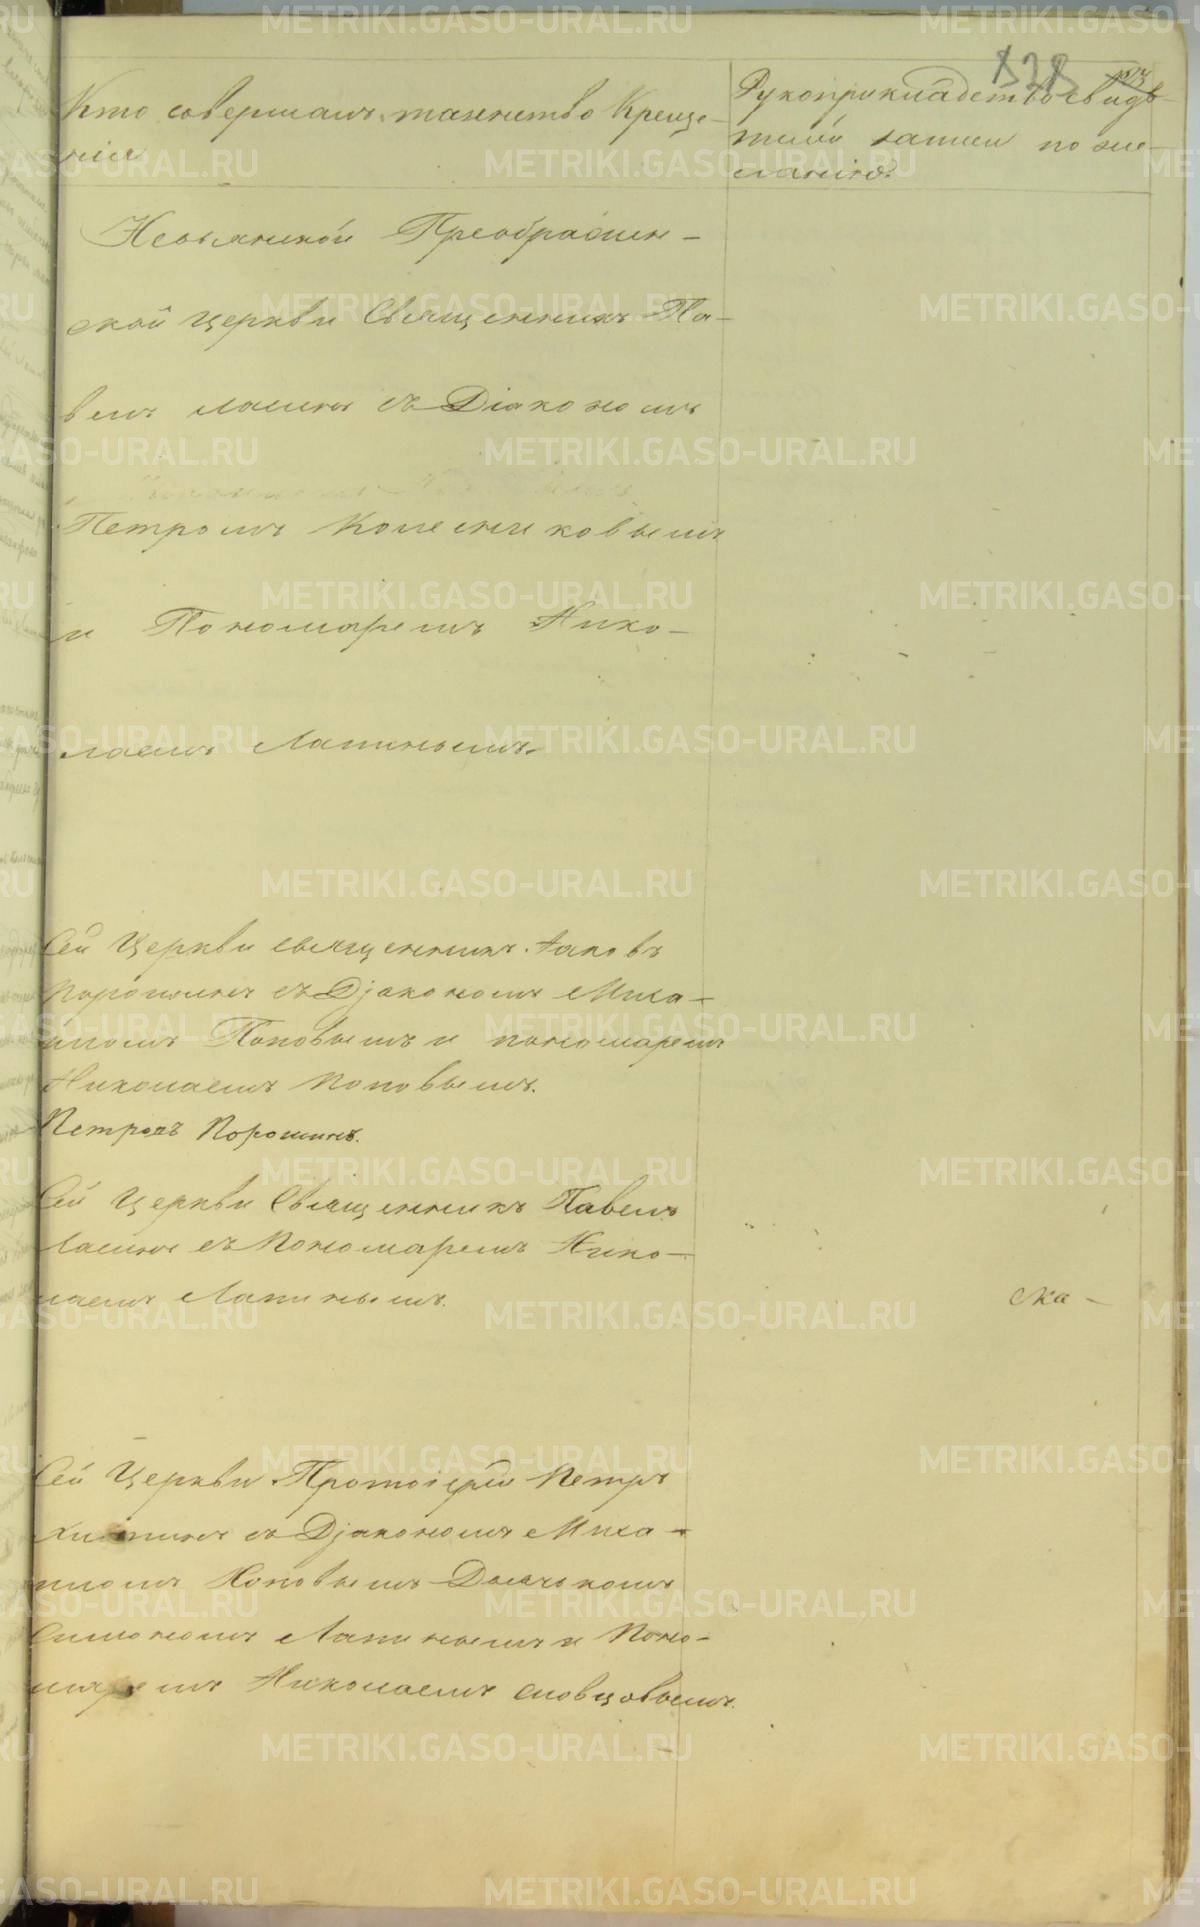 828
Кто совершалъ таинство Креще-
нія
Рукоприкладство свидѣ-
телей записи по же-
ланію.
Невьянской Преображен-
ской Церкви Священникъ Па-
велъ съ Діакономъ
Петромъ Колесниковымъ
и Пономаремъ Нико-
лаемъ Лапинымъ.
Сей Церкви священникъ Іаковъ
Порошинъ съ Діякономъ Миха-
иломъ Поповымъ и пономаремъ
Николаемъ Поповымъ.
Петромъ Порошинъ.
Сей Церкви Священникъ Павелъ
съ Пономаремъ Нико-
лаемъ Лапинымъ.
ска-
Сей Церкви Протоіерей Петръ
съ Діякономъ Миха-
иломъ Поповымъ Дьячкомъ
Симономъ Лапинымъ и Поно-
маремъ Николаемъ Словцовымъ.
METRIKI.GASO-URAL.RU